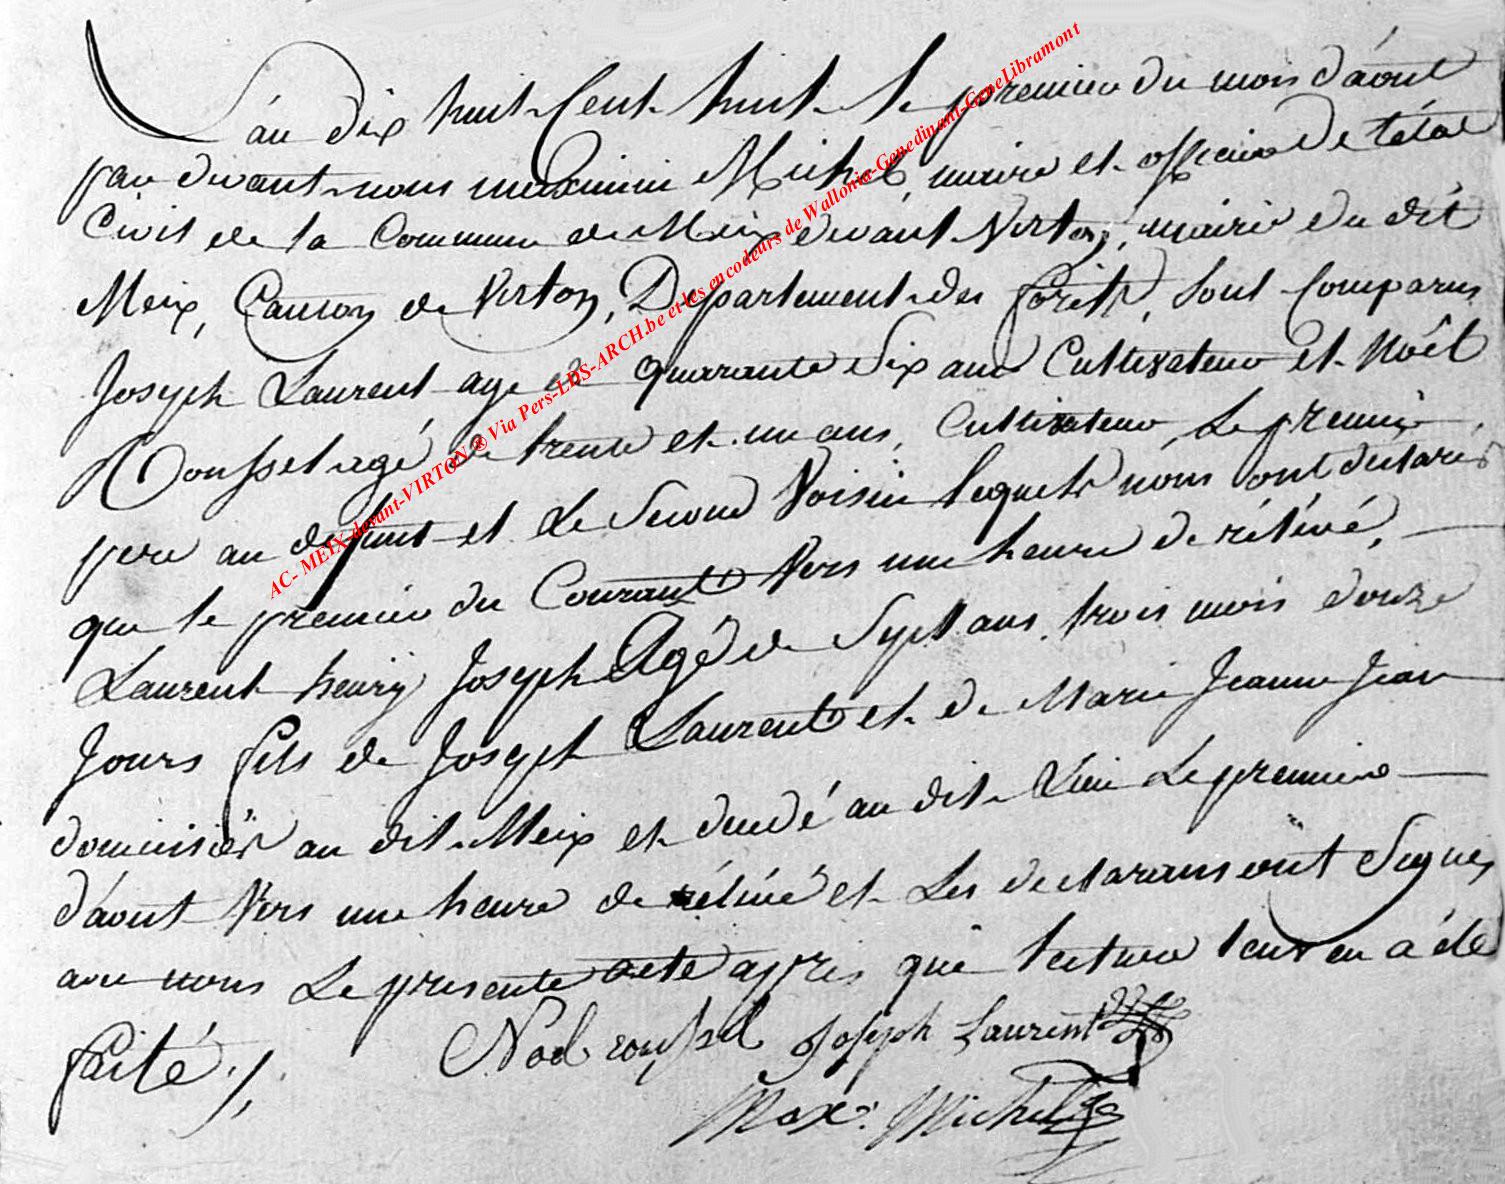 L'an dix huit Cent huit le premier du mois d'aout
par devant nous maximin Michel, maire et officier de l'état
Civil de la Commune de Meix devant Virton, mairie du dit
Meix, Canton de Virton, Département des forêts, sont Comparus
Joseph Laurent age de quarante Six ans Cultivateur et Noël
Rousset agé de trente et un ans, Cultivateur Le premier
pere au defunt et Le Second Voisin lequels nous ont déclarés
que le premier du Courant Vers une heure de rélévé,
Laurent henry Joseph Agé de Sept ans trois mois douze
Jours fils de Joseph Laurent et de Marie Jeanne Jean
domiciliés au dit Meix et decedé au dit Lieu Le premier
d'aout Vers une heure de rélévé et Les declarans ont Signés
avec nous Le presente acte apres que lecture leur en a été
faité ./.
Noel rousset Joseph Laurent
Max: Michel
AC- MEIX-devant-VIRTON® Via Pers-LDS-ARCH.be et les encodeurs de Wallonia-Genedinant-GeneLibramont